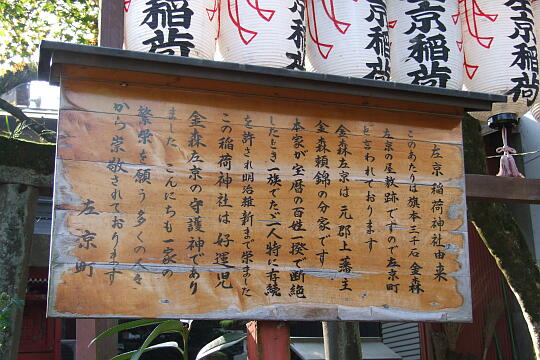 左京稲荷
左京稲荷
左京稲荷
左京稲荷
左京稲荷神社由来
このあたりは旗本三千石金森
左京の屋敷跡ですので左京町
と言われております
金森左京は元郡上藩主
金森頼錦の分家です
本家が宝暦の百姓一揆で断絶
したとき一族でたゞ一人特に存続
を許され明治維新まで栄ました
この稲荷神社は好運児
金森左京の守護神であり
ました こんにちも一家の
繁栄を願う多くの人々
から崇敬されております
左京町